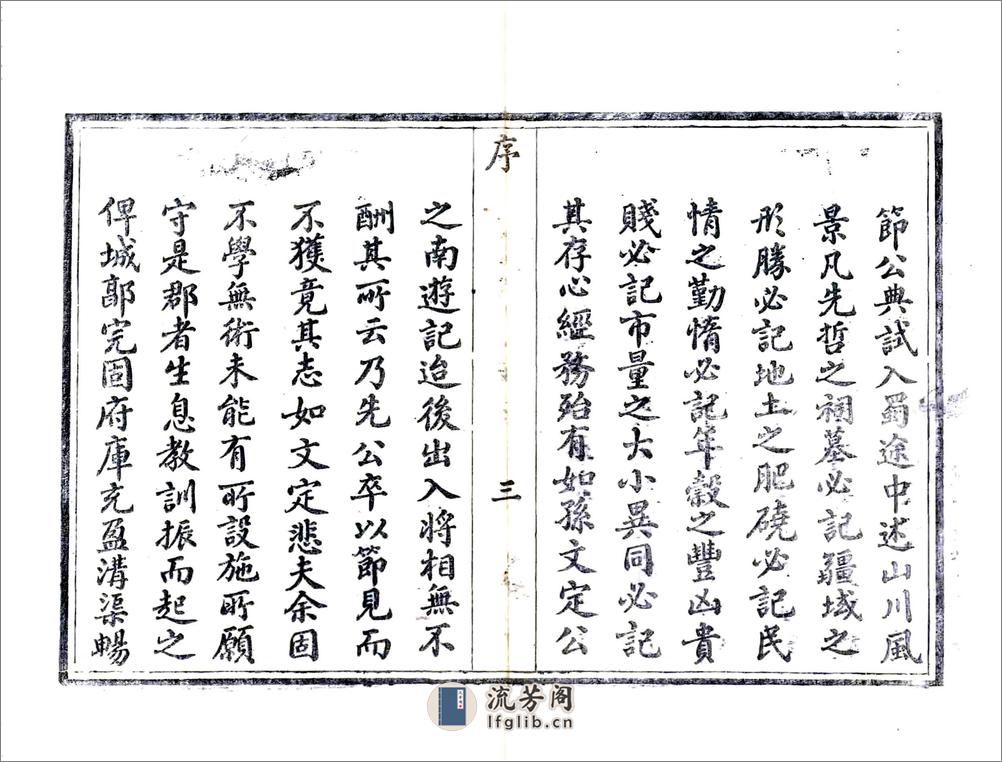 節公典試入蜀途中述山川風
景凡先哲之祠墓必記疆域之
形勝必記地土之肥磽必記民
情之勤惰必記年穀之豐凶貴
賤必記市量之大小異同必記
其存心經務殆有如孫文定公
序
三
之南遊記迨後出入將相無不
酬其所云乃先公卒以節見而
不獲竟其志如文定悲夫余固
不學無術未能有所設施所願
守是郡者生息教訓振而起之
俾城郭完固府庫充盈溝渠暢
流芳阁
lfglib.cn